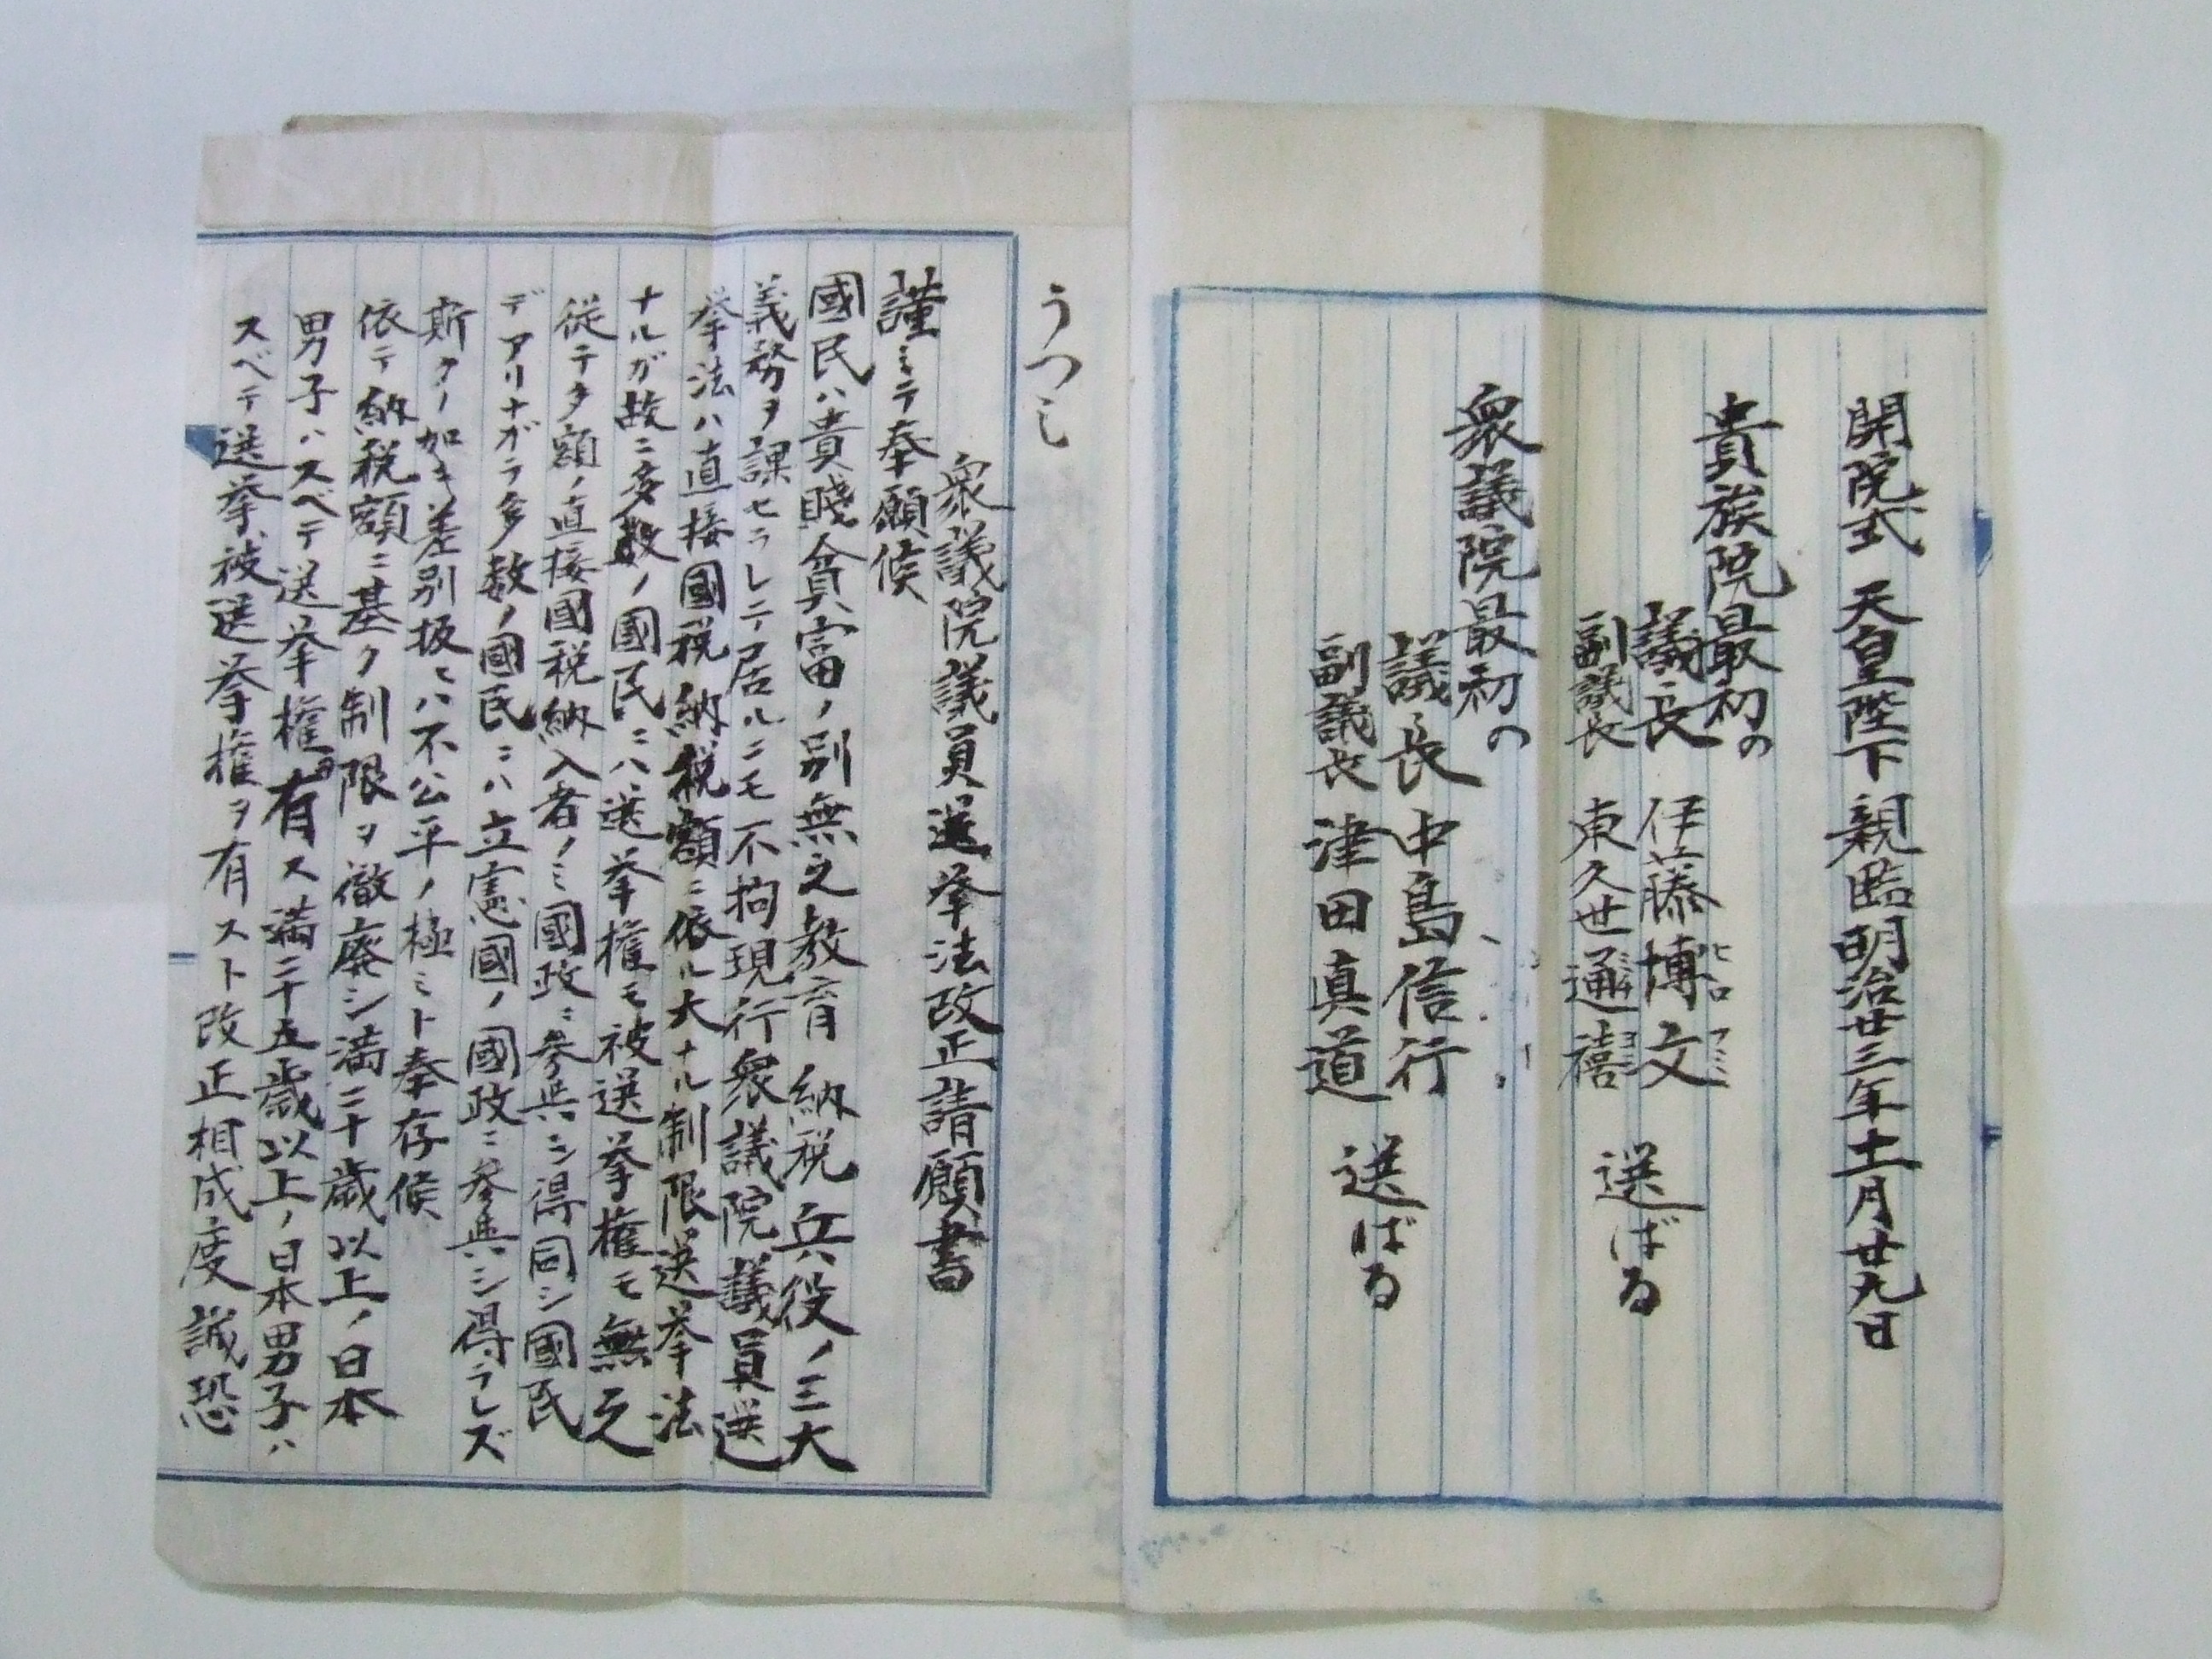 開院式 天皇陛下親臨明治廿三年十一月廿九日
貴族院最初の
議長 伊藤博文
ヒロブミ
副議長 東久世通禧
ミチヨミ
選ばる
衆議院最初の
議長 中島信行
副議長 津田真道
選ばる
うつし
衆議院議員選挙法改正請願書
謹ミテ奉願候
國民ハ貴賤貧富ノ別無之教育納税兵役ノ三大
義務ヲ課セラレテ居ルニモ不拘現行衆議院議員選
挙法ハ直接國税納税額ニ依ル大ナル制限選挙法
ナルガ故ニ多数ノ國民ニハ選挙権モ被選挙権モ無之
従テ多額ノ直接國税納入者ノミ國政ニ参與シ得同シ國民
デアリナガラ多数ノ國民ニハ立憲國ノ國政ニ参與シ得ラレズ
斯クノ如キ差別扱ヒハ不公平ノ極ミト奉存候
依テ納税額ニ基ク制限ヲ徹廃シ満二十歳以上ノ日本
男子ハスベテ選挙権有ス満二十五歳以上ノ日本男子ハ
スベテ選挙被選挙権ヲ有スト改正相成度誠恐